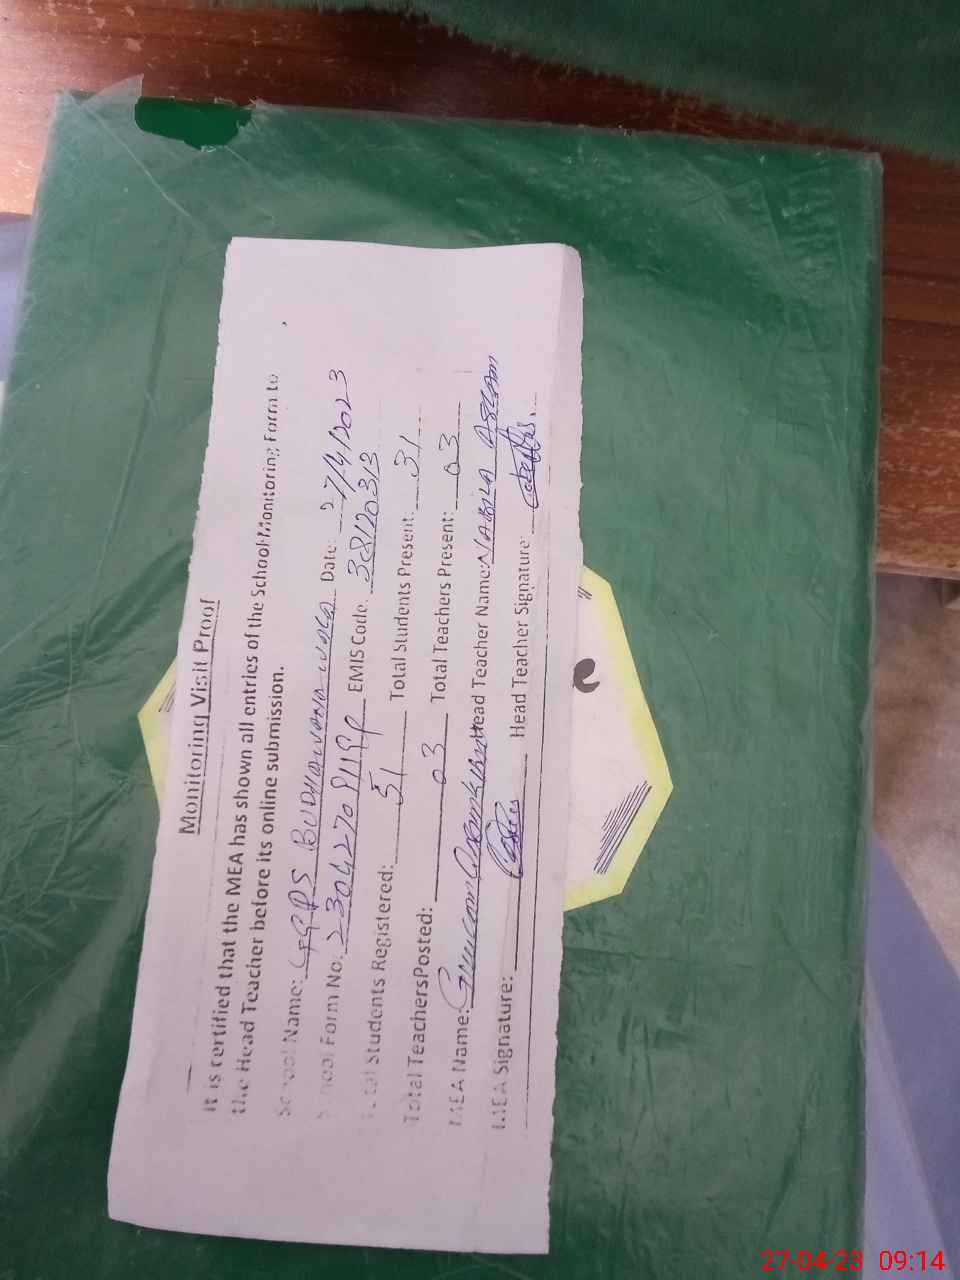 Monitoring Visit Proof
It is certified that the MEA has shown all entries of the School Monitoring Form to
the Head Teacher before its online submission.
School Name: GGPS Date: 27/4/2023
School Form No: EMIS Code: 38120313
Total Students Registered: 51 Total Students Present: 31
Total TeachersPosted: 03 Total Teachers Present: 03
MEA Name: Head Teacher Name: NABILA ASLAM
MEA Signature: Head Teacher Signature:
27-04-23 09:14